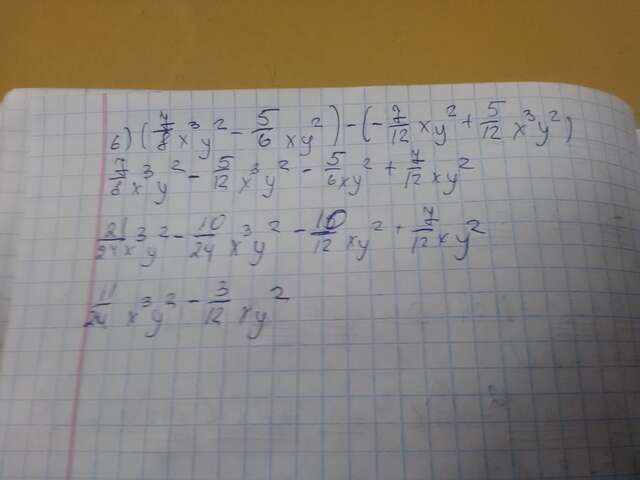 б) (7/8 x³y² - 5/6 xy²) - (-7/12 xy² + 5/12 x³y²)
7/8 x³y² - 5/12 x³y² - 5/6 xy² + 7/12 xy²
21/24 x³y² - 10/24 x³y² - 10/12 xy² + 7/12 xy²
11/24 x³y² - 3/12 xy²